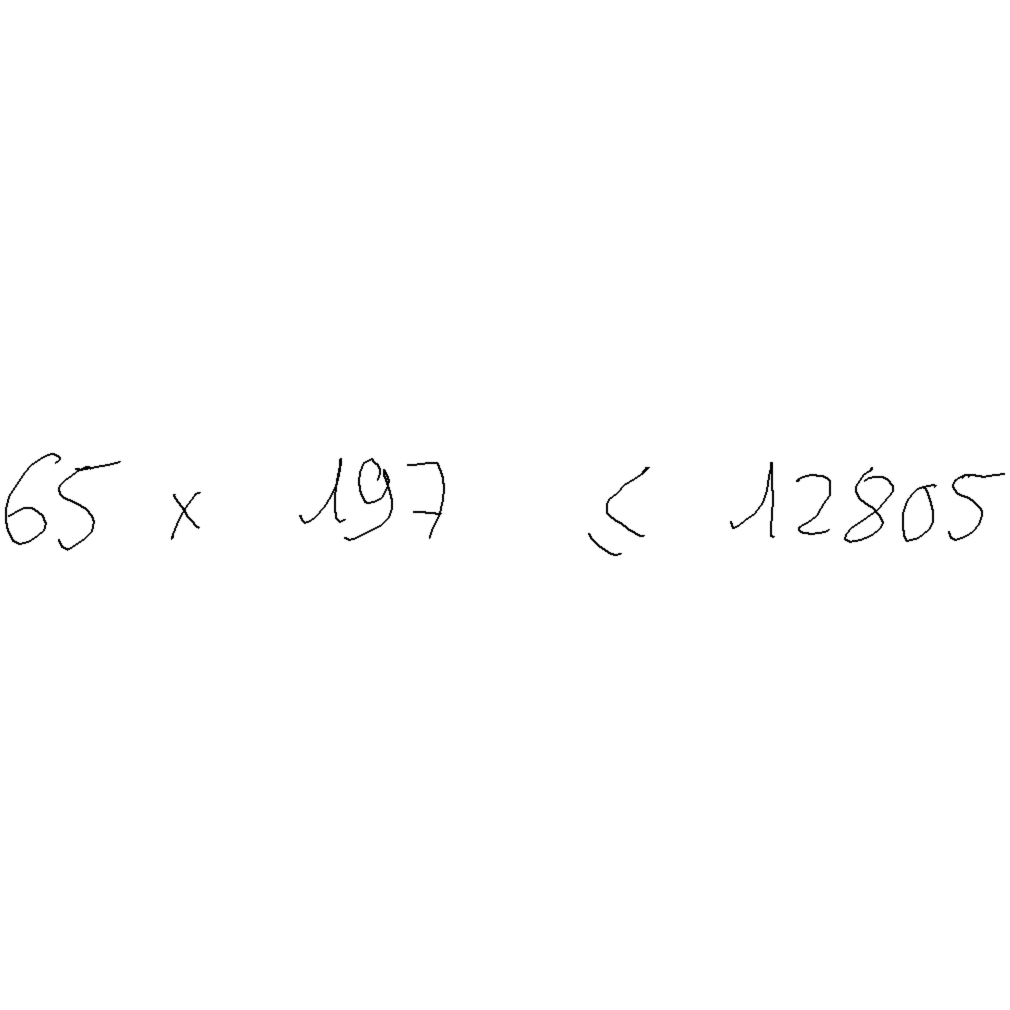 65 x 197 ≤ 12805